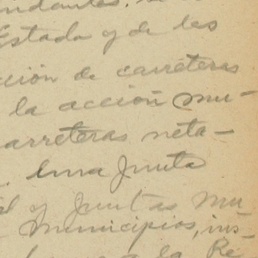 ndantes.
Estado y de les
cción de carreteras
la acción mu-
carreteras neta-
Una Junta
l y Juntas Mu-
Municipios, ins-
a la Re